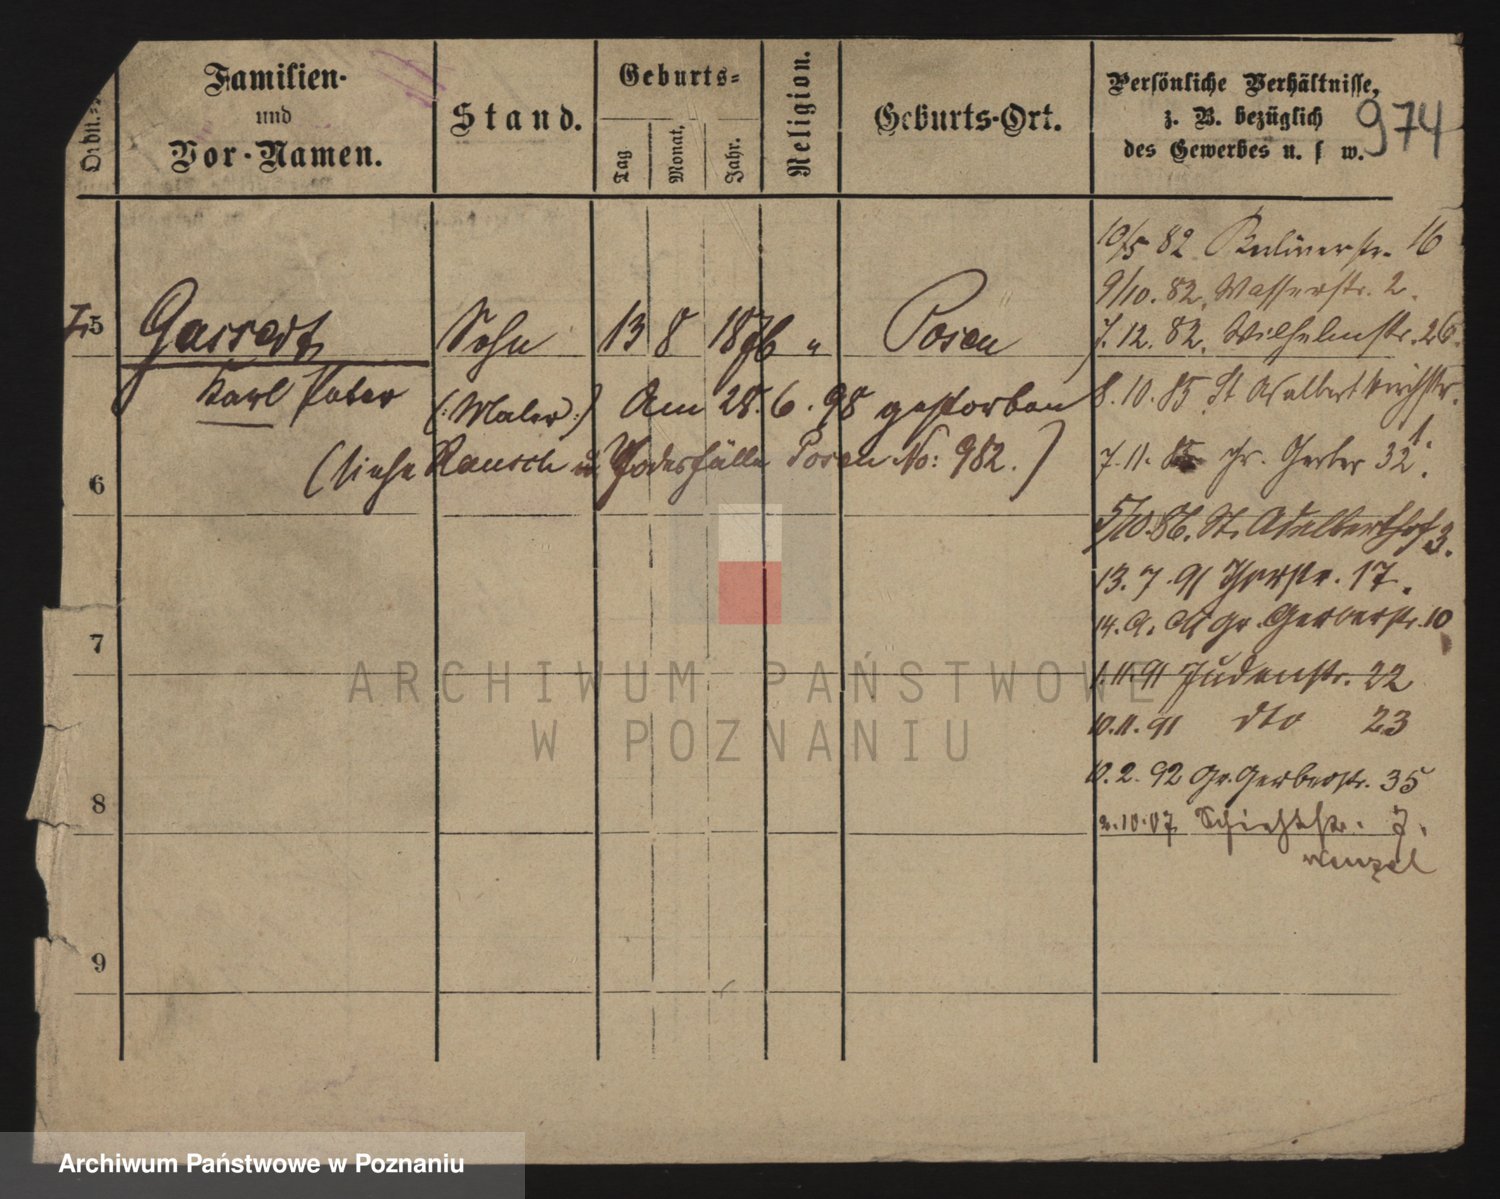 Ordn.=
Familien-
und
Vor-Namen.
Stand.
Geburts=
Tag
Monat.
Jahr.
Religion.
Geburts-Ort.
Persönliche Verhältnisse,
z. B. bezüglich
des Gewerbes u. s w.
974
10/5 82 Berlinerstr. 16
9/10. 82. Wasserstr. 2.
5
Sohn
13 8 1876 "
Posen
7. 12. 82. Wilhelmstr. 26.
Karl Peter
(:Maler:)
Am 28. 6. 98 gestorben
8. 10. 85 St Adalbertkirchstr.
1.
(siehe Rausch u Todesfälle Posen No: 982.)
7. 11. 85 Gr. Gerber 32.
6
5/10. 86. St. Adalberthof 3.
13. 7. 91 Thorstr. 17.
14. 9. 91 Gr. Gerberstr. 10
7
1. 11. 91 Judenstr. 22
10. 11. 91 dto 23
10. 2. 92 Gr. Gerberstr. 35
8
2. 10. 07 7.
Wenzel
9
ARCHIWUM PAŃSTWOWE
W POZNANIU
Archiwum Państwowe w Poznaniu